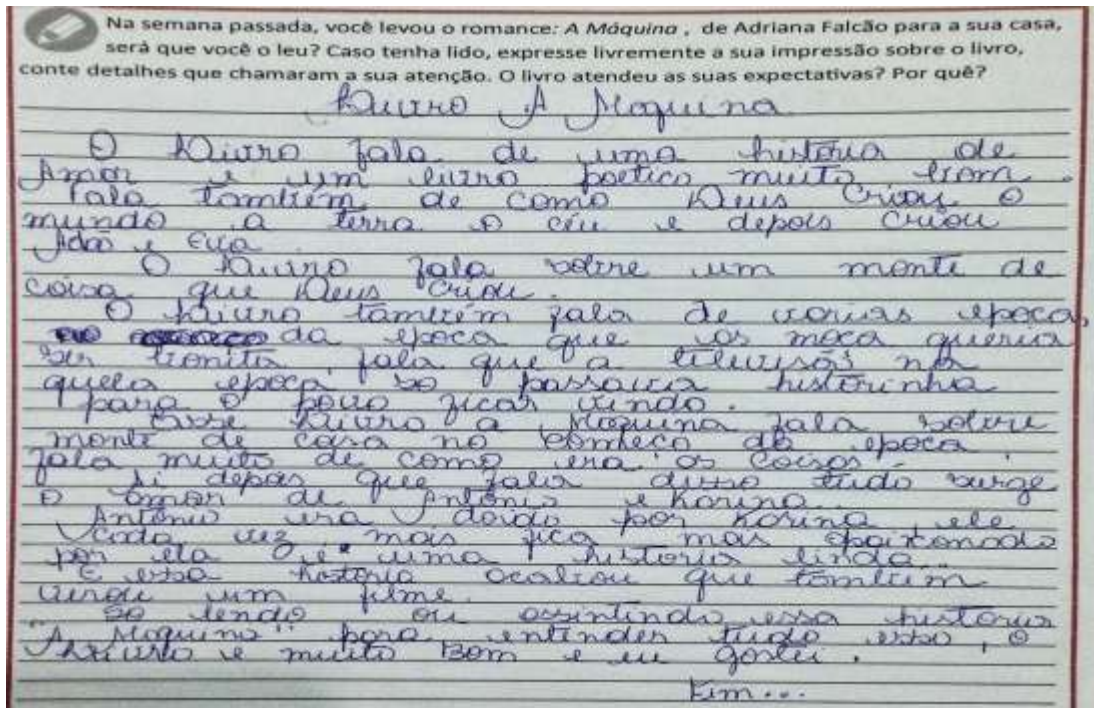 Na semana passada, você levou o romance: A Máquina , de Adriana Falcão para a sua casa,
será que você o leu? Caso tenha lido, expresse livremente a sua impressão sobre o livro,
conte detalhes que chamaram a sua atenção. O livro atendeu as suas expectativas? Por quê?
Livro A Maquina
O Livro fala de uma história de
Amor e um livro poetico muito bom.
Fala também de como Deus Criou o
mundo a terra o céu e depois criou
Adão e Eva
O Livro fala sobre um monte de
coisa que Deus criou.
O Livro também fala de varias epoca,
da epoca que as moça queria
ser bonita, fala que a televisão na
quela epoca so passava historinha
para o povo ficar rindo.
Esse Livro a Maquina fala sobre
monte de coisa no começo da epoca
fala muito de como era as coisas.
Ai depois que fala disso tudo surge
o amor de Antônio e Karina.
Antônio era doido por Karina, ele
cada vez mais fica mas apaixonado
por ela e uma historia linda...
E essa historia acabou que também
virou um filme.
So lendo ou assintindo essa historia
"A Maquina" para entender tudo isso, o
Livro e muito Bom e eu gostei.
Fim...